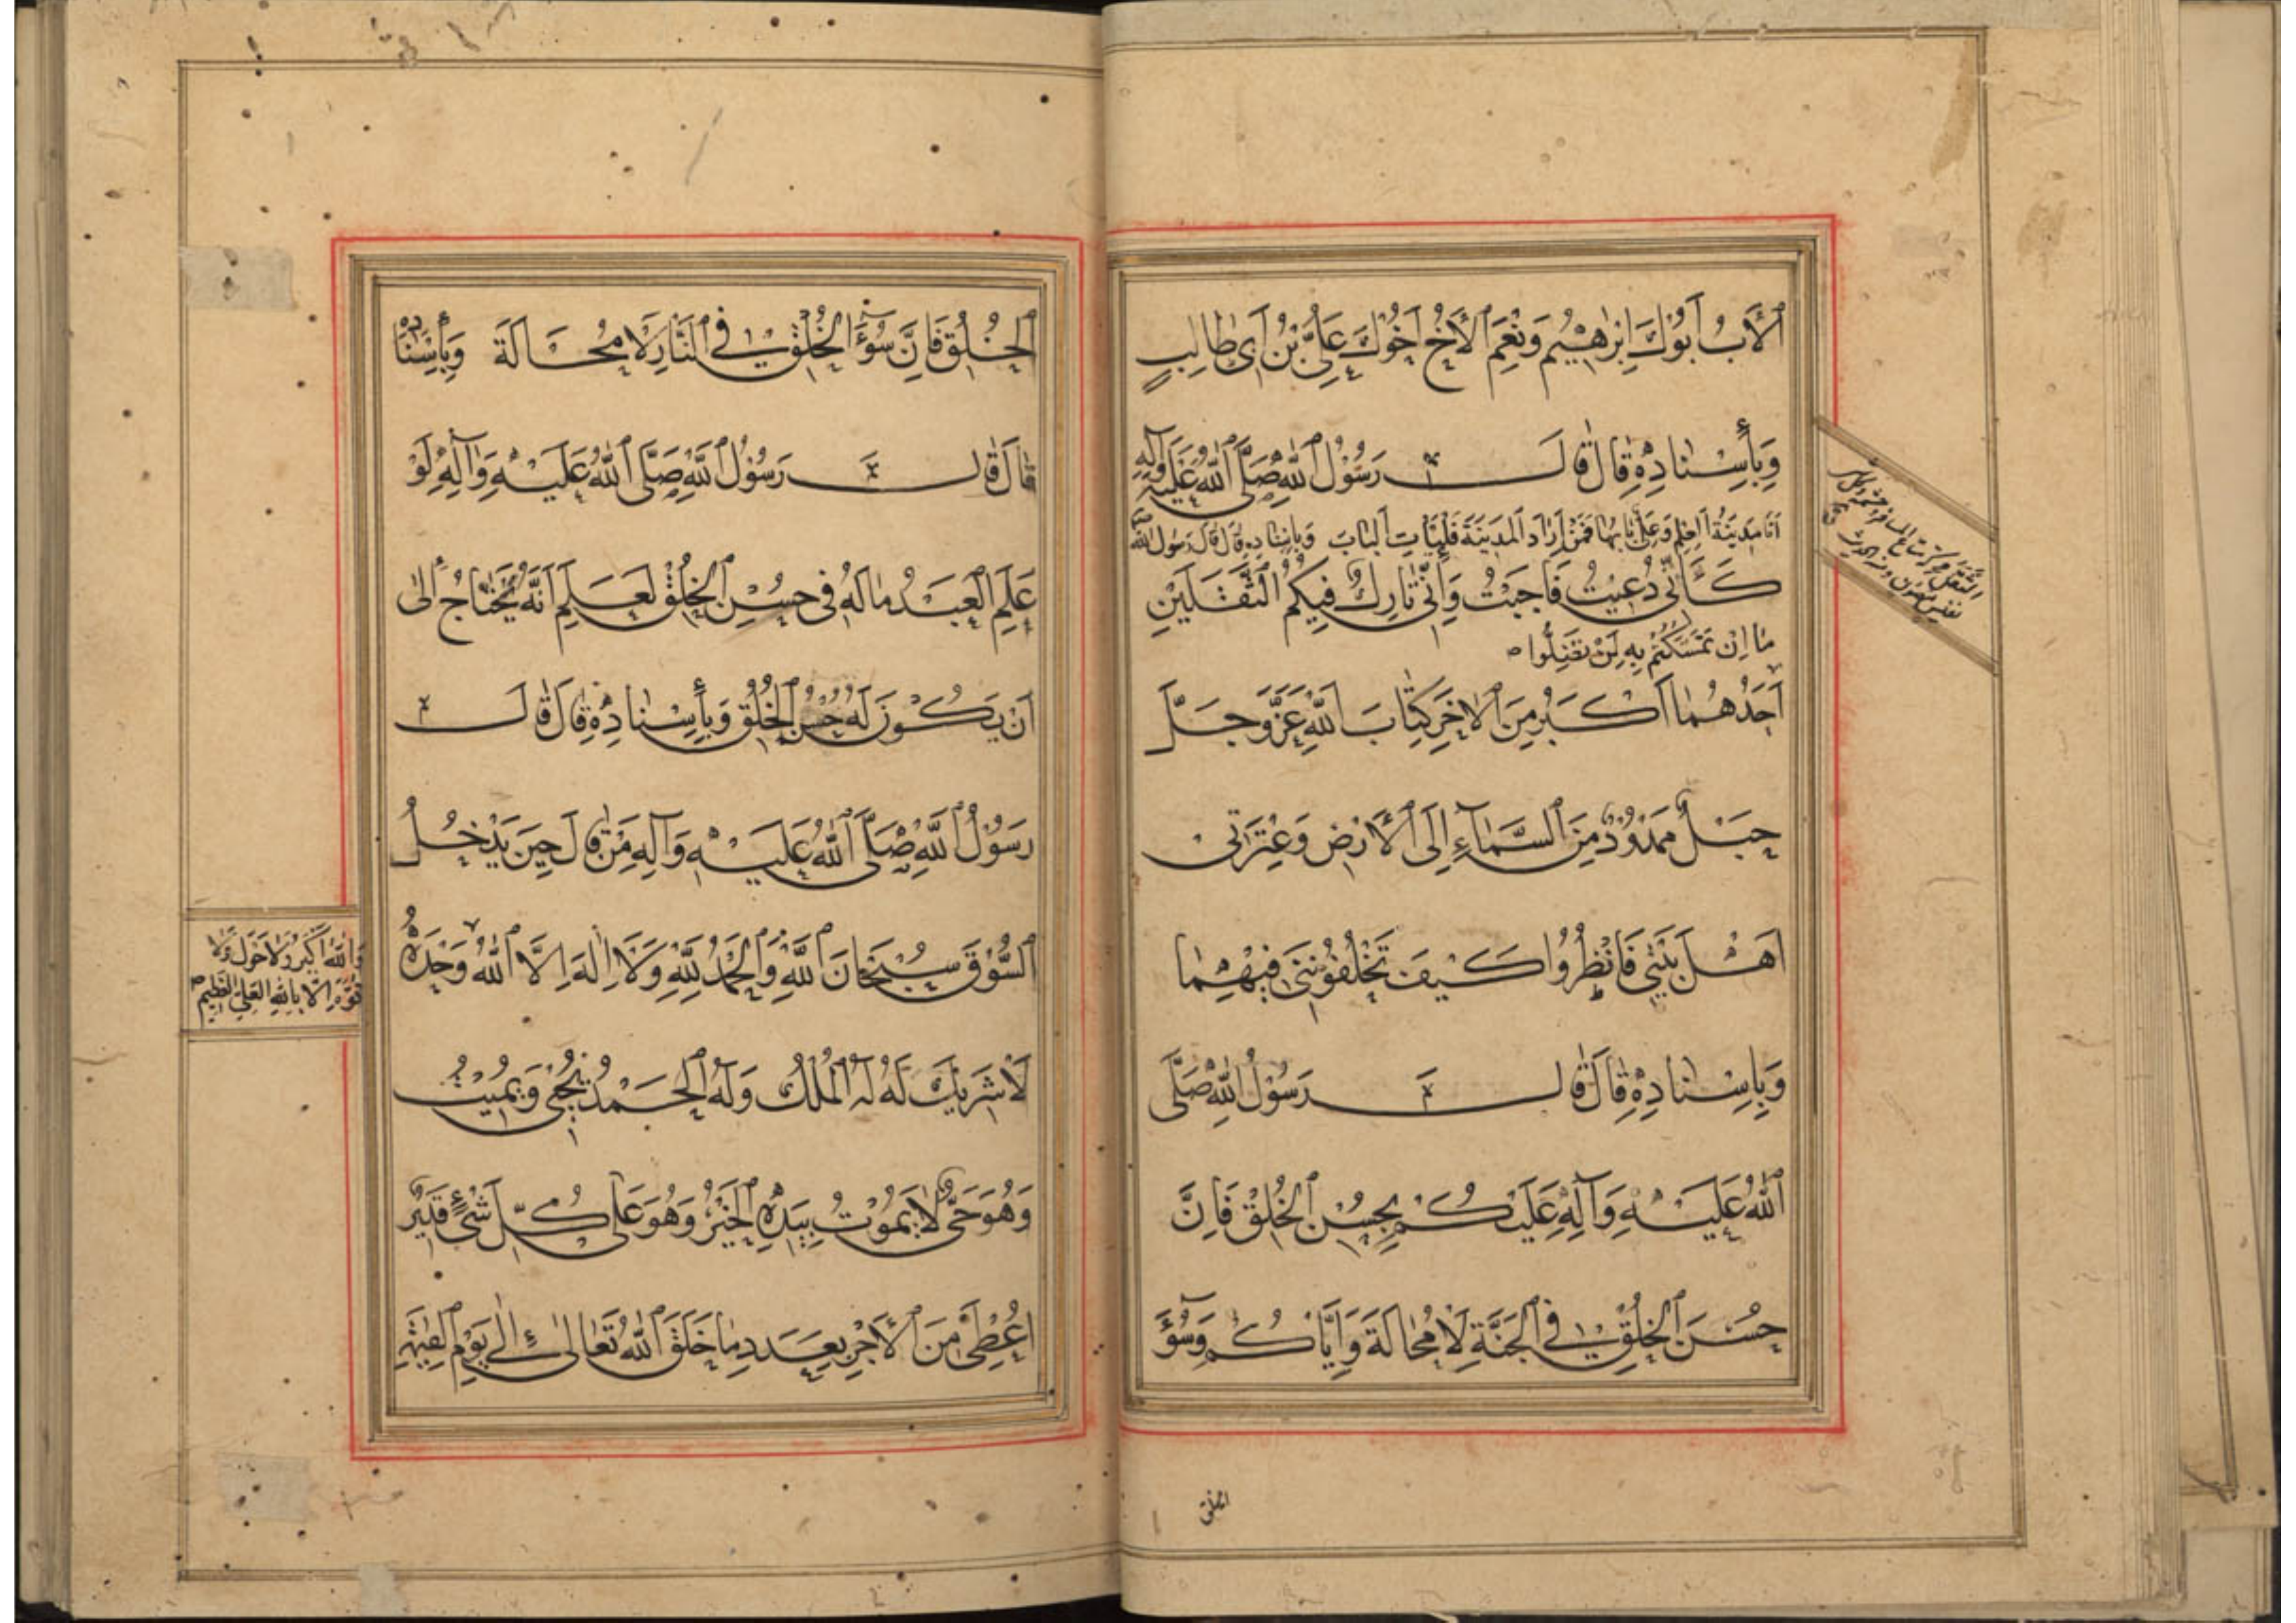 اَلْأَبُ أَبُوكَ إِبْرٰهِيْمُ وَنِعْمَ الْأَخُ أَخُوْكَ عَلِيُّ بْنُ أَبِي طَالِبٍ
وَبِأَسْنَادِهِ قَالَ قَالَ رَسُوْلُ اللّٰهِ صَلَّى اللّٰهُ عَلَيْهِ وَآلِهِ
اَنَا مَدِيْنَةُ الْعِلْمِ وَعَلِيٌّ بَابُهَا فَمَنْ اَرَادَ الْمَدِيْنَةَ فَلْيَأْتِ الْبَابَ وَبِاِسْنَادِهِ قَالَ قَالَ رَسُولُ اللّٰهِ
كَأَنِّي دُعِيْتُ فَاَجَبْتُ وَاِنِّي تَارِكٌ فِيْكُمُ الثَّقَلَيْنِ
مَا اِنْ تَمَسَّكْتُمْ بِهِ لَنْ تَضِلُّوا
اَحَدُهُمَا اَكْبَرُ مِنَ الْاٰخَرِ كِتَابَ اللّٰهِ عَزَّ وَجَلَّ
حَبْلٌ مَمْدُوْدٌ مِنَ السَّمَآءِ اِلَى الْأَرْضِ وَعِتْرَتِي
اَهْلَ بَيْتِي فَانْظُرُوْا كَيْفَ تَخْلُفُوْنَنِي فِيْهِمَا
وَبِاِسْنَادِهِ قَالَ قَالَ رَسُوْلُ اللّٰهِ صَلَّى
اللّٰهُ عَلَيْهِ وَآلِهِ عَلَيْكُمْ بِحُسْنِ الْخُلْقِ فَاِنَّ
حُسْنَ الْخُلْقِ فِي الْجَنَّةِ لَا مُحَالَةَ وَاِيَّاكُمْ وَسُوْءَ
الخلق
الْخُلُقِ فَاِنَّ سُوْءَ الْخُلْقِ فِي النَّارِ لَا مُحَالَةَ وَبِأَسْنَادِهِ
قَالَ قَالَ رَسُوْلُ اللّٰهِ صَلَّى اللّٰهُ عَلَيْهِ وَاٰلِهِ لَوْ
عَلِمَ الْعَبْدُ مَا لَهُ فِي حُسْنِ الْخُلْقِ لَعَلِمَ اَنَّهُ يَحْتَاجُ اِلٰى
اَنْ يَكُوْنَ لَهُ حُسْنُ الْخُلُقِ وَبِأَسْنَادِهِ قَالَ قَالَ
رَسُوْلُ اللّٰهِ صَلَّى اللّٰهُ عَلَيْهِ وَآلِهِ مَنْ قَالَ حِيْنَ يَدْخُلُ
السُّوْقَ سُبْحَانَ اللّٰهِ وَالْحَمْدُ لِلّٰهِ وَلَا اِلٰهَ اِلَّا اللّٰهُ وَحْدَهُ
وَاللّٰهُ اَكْبَرُ وَلَا حَوْلَ وَلَا
قُوَّةَ اِلَّا بِاللّٰهِ الْعَلِيِّ الْعَظِيْمِ
لَا شَرِيْكَ لَهُ لَهُ الْمُلْكُ وَلَهُ الْحَمْدُ يُحْيِي وَيُمِيْتُ
وَهُوَ حَيٌّ لَا يَمُوْتُ بِيَدِهِ الْخَيْرُ وَهُوَ عَلٰى كُلِّ شَيْءٍ قَدِيْرٌ
اُعْطِيَ مِنَ الْأَجْرِ بِعَدَدِ مَا خَلَقَ اللّٰهُ تَعَالٰى اِلٰى يَوْمِ الْقِيٰمَةِ